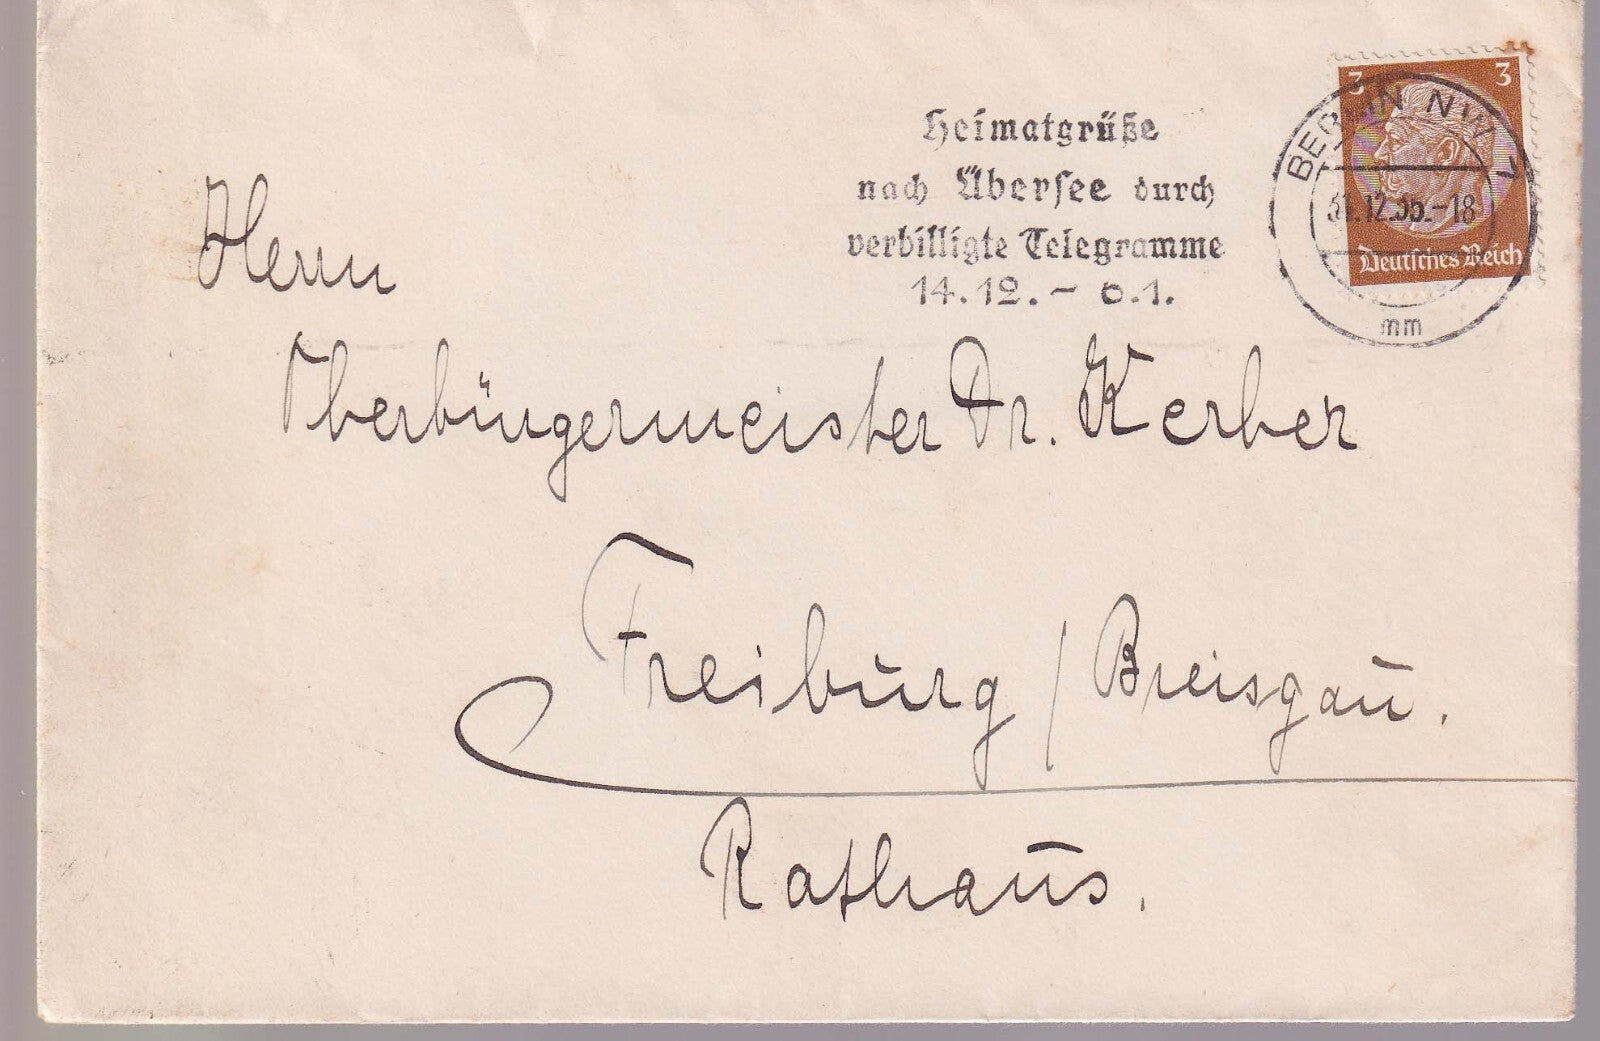 Heimatgrüße
nach Übersee durch
verbilligte Telegramme
14.12. - 6.1.
3 3
BERLIN NW 7
31.12.35.-18
mm
Deutsches Reich
Herrn
Oberbürgermeister Dr. Kerber
Freiburg / Breisgau.
Rathaus.